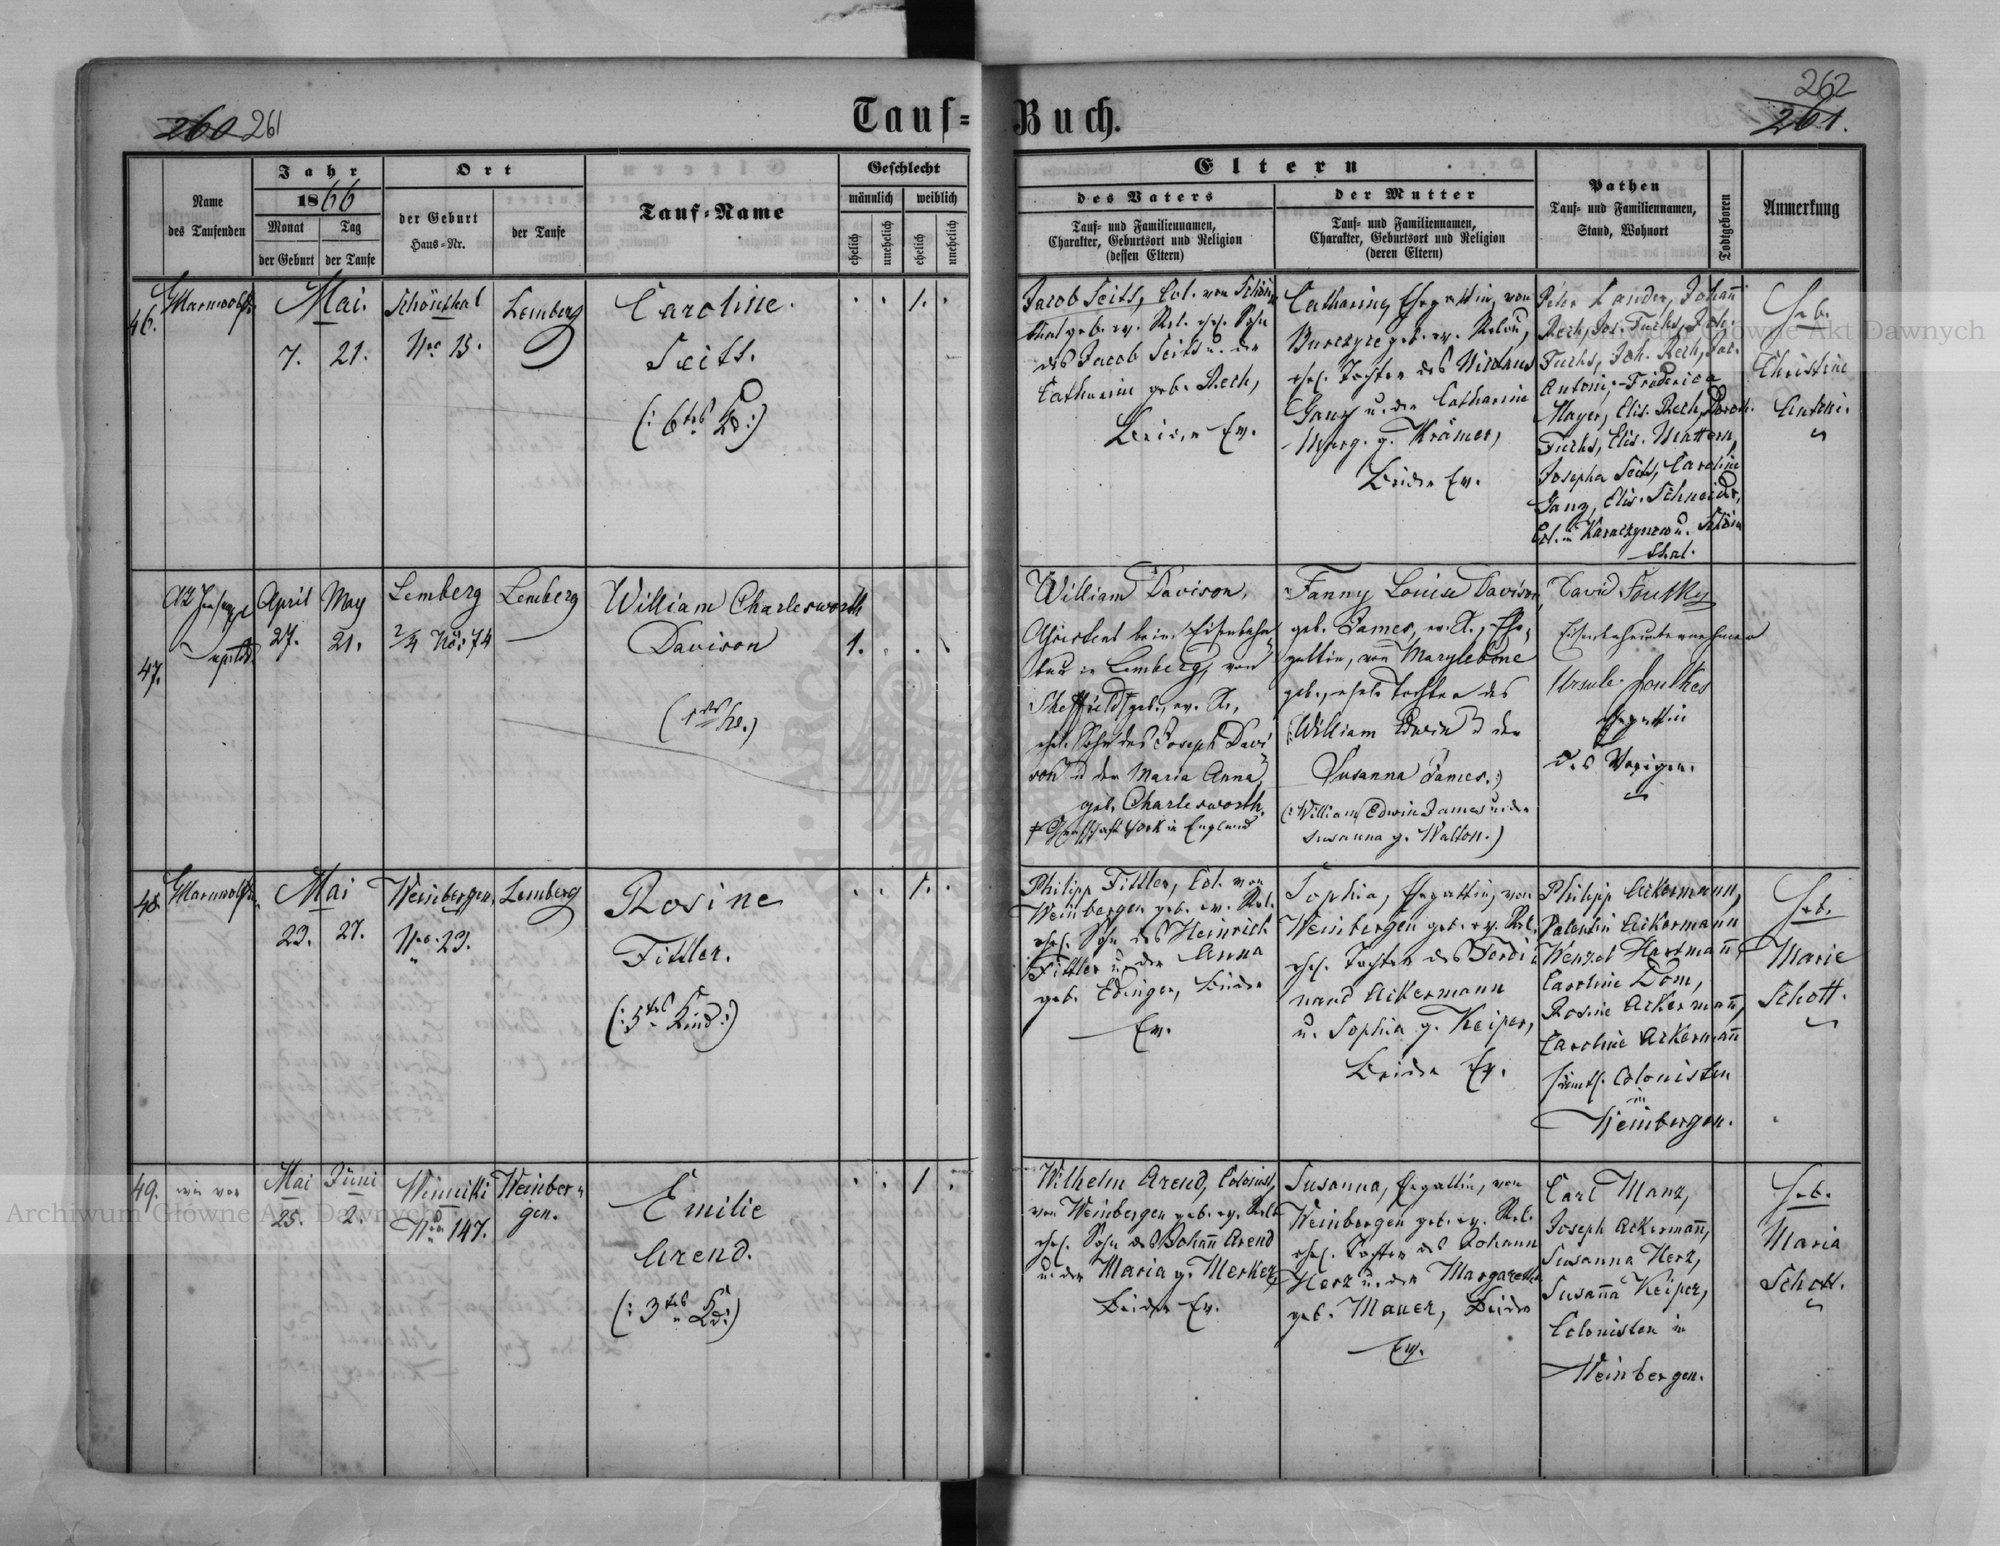 260 261
Tauf=
Buch.
262
261.
Name
des Taufenden
Jahr
1866
Monat
der Geburt
Tag
der Taufe
Ort
der Geburt
Haus=Nr.
der Taufe
Tauf=Name
Geschlecht
männlich
weiblich
ehelich
unehelich
ehelich
unehelich
Eltern
des Vaters
Tauf= und Familiennamen,
Charakter, Geburtsort und Religion
(dessen Eltern)
der Mutter
Tauf= und Familiennamen,
Charakter, Geburtsort und Religion
(deren Eltern)
Pathen
Tauf= und Familiennamen,
Stand, Wohnort
Todtgeboren
Anmerkung
46.
Mai.
7. 21.
Schönthal
Nro 13.
Lemberg
Caroline
Seitz.
(: 6tes Kd :)
1.
Jacob Seitz, Col. von Schön
thal geb. ev. Rel. ehel. Sohn
des Jacob Seitz u. der
Catharine geb. Rech,
Beide Ev.
Catharina, Ehegattin, von
geb. ev. Relon,
ehel. Tochter des Nicolaus
Ganz u. der Catharine
Marg. g. Krämer,
Beide Ev.
Peter Lander, Johañ
Rech, Jos. Fuchs, Joh.
Fuchs, Joh. Rech, Jac.
Antoni, Friderica
Mayer, Elis. Rech, Doroth.
Fuchs, Elis.
Josepha Seitz, Caroline
Ganz, Elis. Schneider,
Col. in Karaczynow u. Schön
thal.
Heb.
Christine
Antoni.
47.
April
27.
May
21.
Lemberg
2/4 No: 74
Lemberg
William Charlesworth
Davison
(1tes Ke.)
1.
William Davison,
Assistent beim Eisenbahn
bau in Lemberg, von
Sheffield geb., ev. R.,
ehel. Sohn des Joseph Davi
son u der Maria Anna,
geb. Charlesworth.
Grafschaft York in England
Fanny Louise Davison
geb. James, ev. R., Ehe
gattin, von Marylebone
geb., ehel. Tochter des
(William Edwin u der
Susanna James.)
(: William Edwin James u. der
Susanna g. Walton.)
David Foulkes
Eisenbahnunternehmer
Ursula Foulkes
Ehegattin
des Vorigen.
48.
Mai
23. 27.
Weinbergen,
Nro. 23.
Lemberg
Rosine
Fittler.
(: 5tes Kind :)
1.
Philipp Fittler, Col. von
Weinbergen geb. ev. Rel.
ehel. Sohn des Heinrich
Fittler u. der Anna
geb. Edinger, Beide
Ev.
Sophia, Ehegattin, von
Weinbergen geb. ev. Rel.
ehel. Tochter des Ferdi
nand Ackermann
u. Sophia g. Keiper,
Beide Ev.
Philipp Ackermann,
Valentin Ackermann
Wenzel Hartmañ,
Caroline Dom,
Rosine Ackermañ,
Caroline Ackermañ
sämtl. Colonisten
in
Weinbergen.
Heb.
Marie
Schott.
49.
wie vor
Mai
25.
Juni
2.
Winniki
Nro 147.
Weinber
gen.
Emilie
Arend.
(: 3tes Kd :)
1.
Wilhelm Arend, Colonist,
von Weinbergen geb. ev. Rel.
ehel. Sohn des Johañ Arend
u. der Maria g. Merker,
Beide Ev.
Susanna, Ehegattin, von
Weinbergen geb. ev. Rel.
ehel. Tochter des Johann
Herz u. der Margareth
geb. Mauer, Beide
Ev.
Carl Manz,
Joseph Ackermañ,
Susanna Herz,
Susaña Keiper,
Colonisten in
Weinbergen.
Heb.
Maria
Schott.
Archiwum Główne Akt Dawnych
Archiwum Główne Akt Dawnych